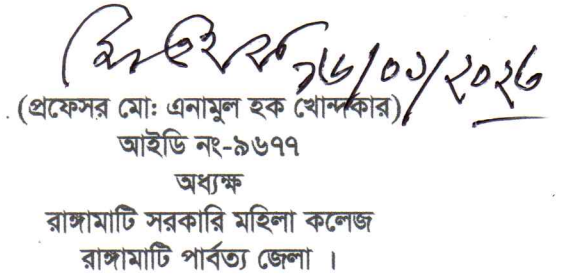 ১৬/০১/২০২৬
(প্রফেসর মো: এনামুল হক খোন্দকার)
আইডি নং-৯৬৭৭
অধ্যক্ষ
রাঙ্গামাটি সরকারি মহিলা কলেজ
রাঙ্গামাটি পার্বত্য জেলা ।